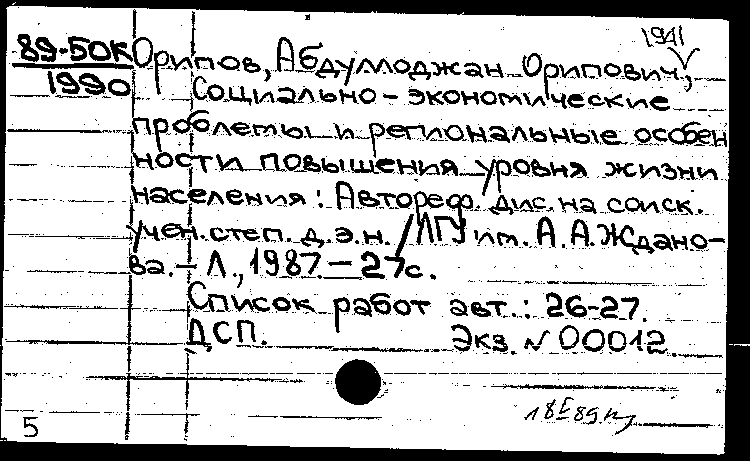 1941
89-50К Орипов, Абдулложан Орипович,
1990 Социально-экономические
проблемы и региональные особен
ности повышения уровня жизни
населения: Автореф. дис. на соиск.
учен. степ. д.э.н. / ЛГУ им. А.А. Ждано-
ва. – Л., 1987. – 27с.
Список работ авт.: 26-27.
ДСП. Экз. N 00012.
5